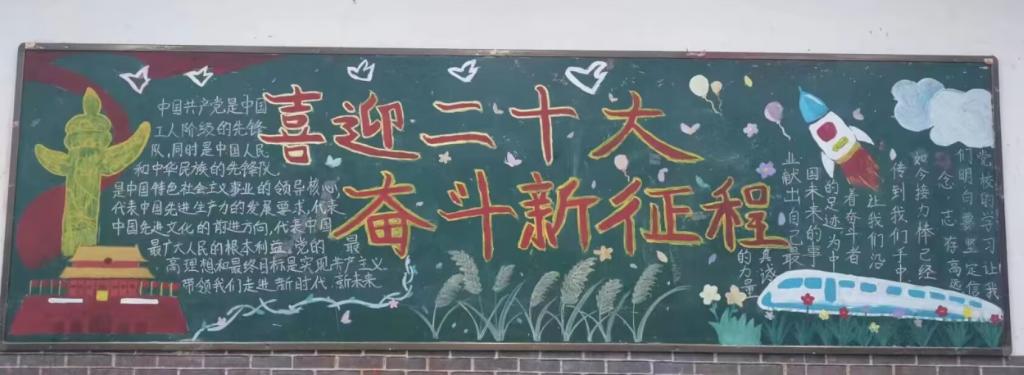 喜迎二十大
奋斗新征程
中国共产党是中国
工人阶级的先锋
队,同时是中国人民
和中华民族的先锋队,
是中国特色社会主义事业的领导核心
代表中国先进生产力的发展要求,代表
中国先进文化的前进方向,代表中国
最广大人民的根本利益。党的最
高理想和最终目标是实现共产主义
带领我们走进新时代,新未来
党校的学习让我
们明白要坚定信
念 志存高远
如今接力棒已经
传到我们手中
让我们沿
着奋斗者
的足迹为中
国未来的事
业献出自己最
真诚的力量